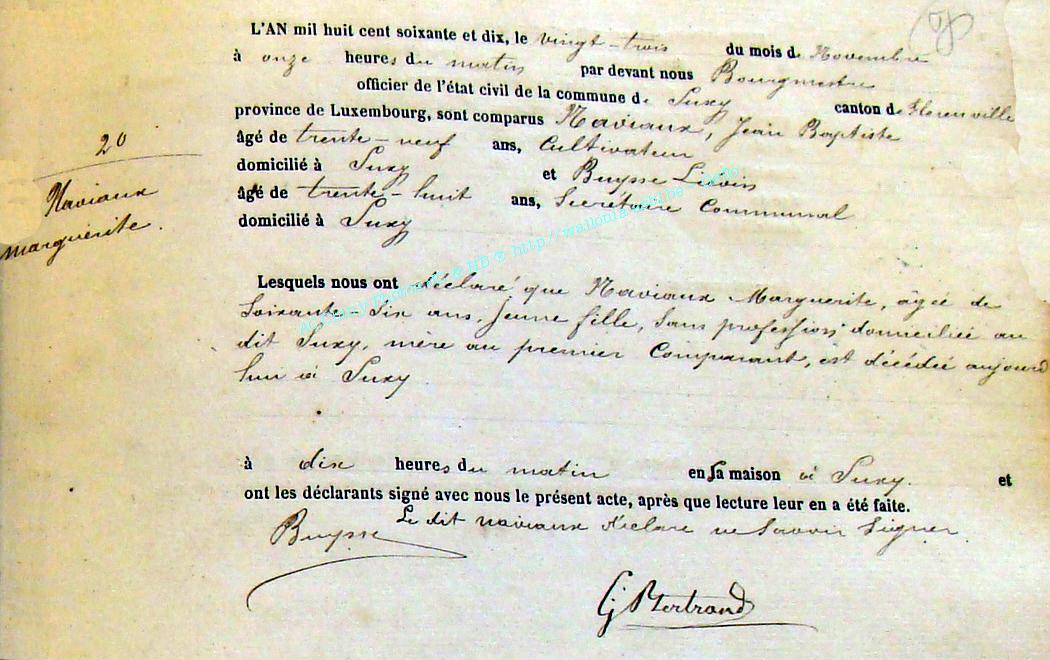 L'AN mil huit cent soixante et dix, le vingt-trois du mois de Novembre
à onze heures du matin par devant nous Bourgmestre
officier de l'état civil de la commune de Suxy canton de Florenville
province de Luxembourg, sont comparus Naviaux, Jean Baptiste
âgé de trente-neuf ans, Cultivateur
domicilié à Suxy et Buysse Liévin
âgé de trente-huit ans, Secrétaire Communal
domicilié à Suxy
20
Naviaux
marguérite.
Lesquels nous ont déclaré que Naviaux Marguerite, âgée de
Soixante Six ans, jeune fille, Sans profession, domiciliée au
dit Suxy, mère au premier Comparant, est décédée aujourd
hui à Suxy
à dix heures du matin en sa maison à Suxy. et
ont les déclarants signé avec nous le présent acte, après que lecture leur en a été faite.
Le dit naviaux déclare ne Savoir Signer.
Buysse
G Bertrand